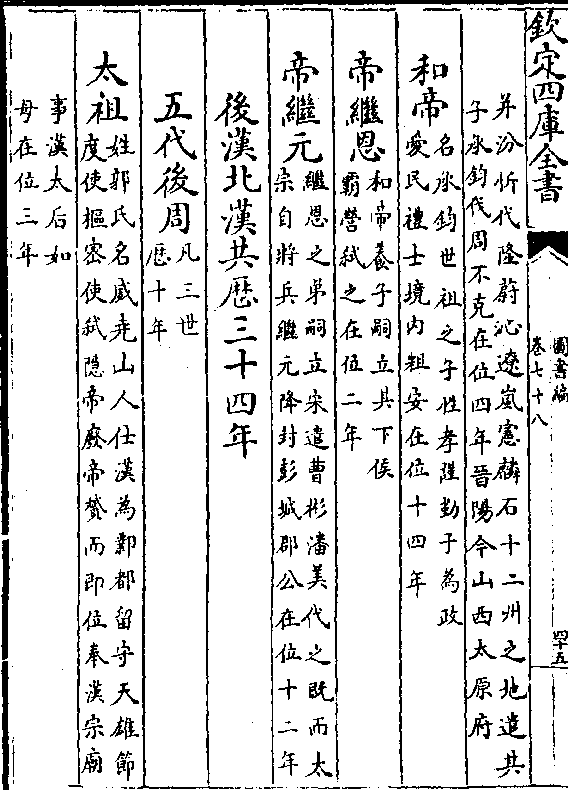 欽定四庫全書
圖書編
卷七十八
四十五
并汾忻代隆蔚沁遼嵐憲麟石十二州之地遣其
子承鈞代周不克在位四年晉陽今山西太原府
和帝
名承鈞世祖之子性孝謹勤于為政
愛民禮士境内粗安在位十四年
帝繼恩
和帝養子嗣立其下侯
霸營弑之在位二年
帝繼元
繼恩之弟嗣立宋遣曹彬潘美代之既而太
宗自將兵繼元降封彭城郡公在位十二年
後漢北漢共歴三十四年
五代後周
凡三世
歴十年
太祖
姓郭氏名威尭山人仕漢為鄴都留守天雄節
度使樞密使弑隠帝廢帝贇而即位奉漢宗廟
事漢太后如
母在位三年